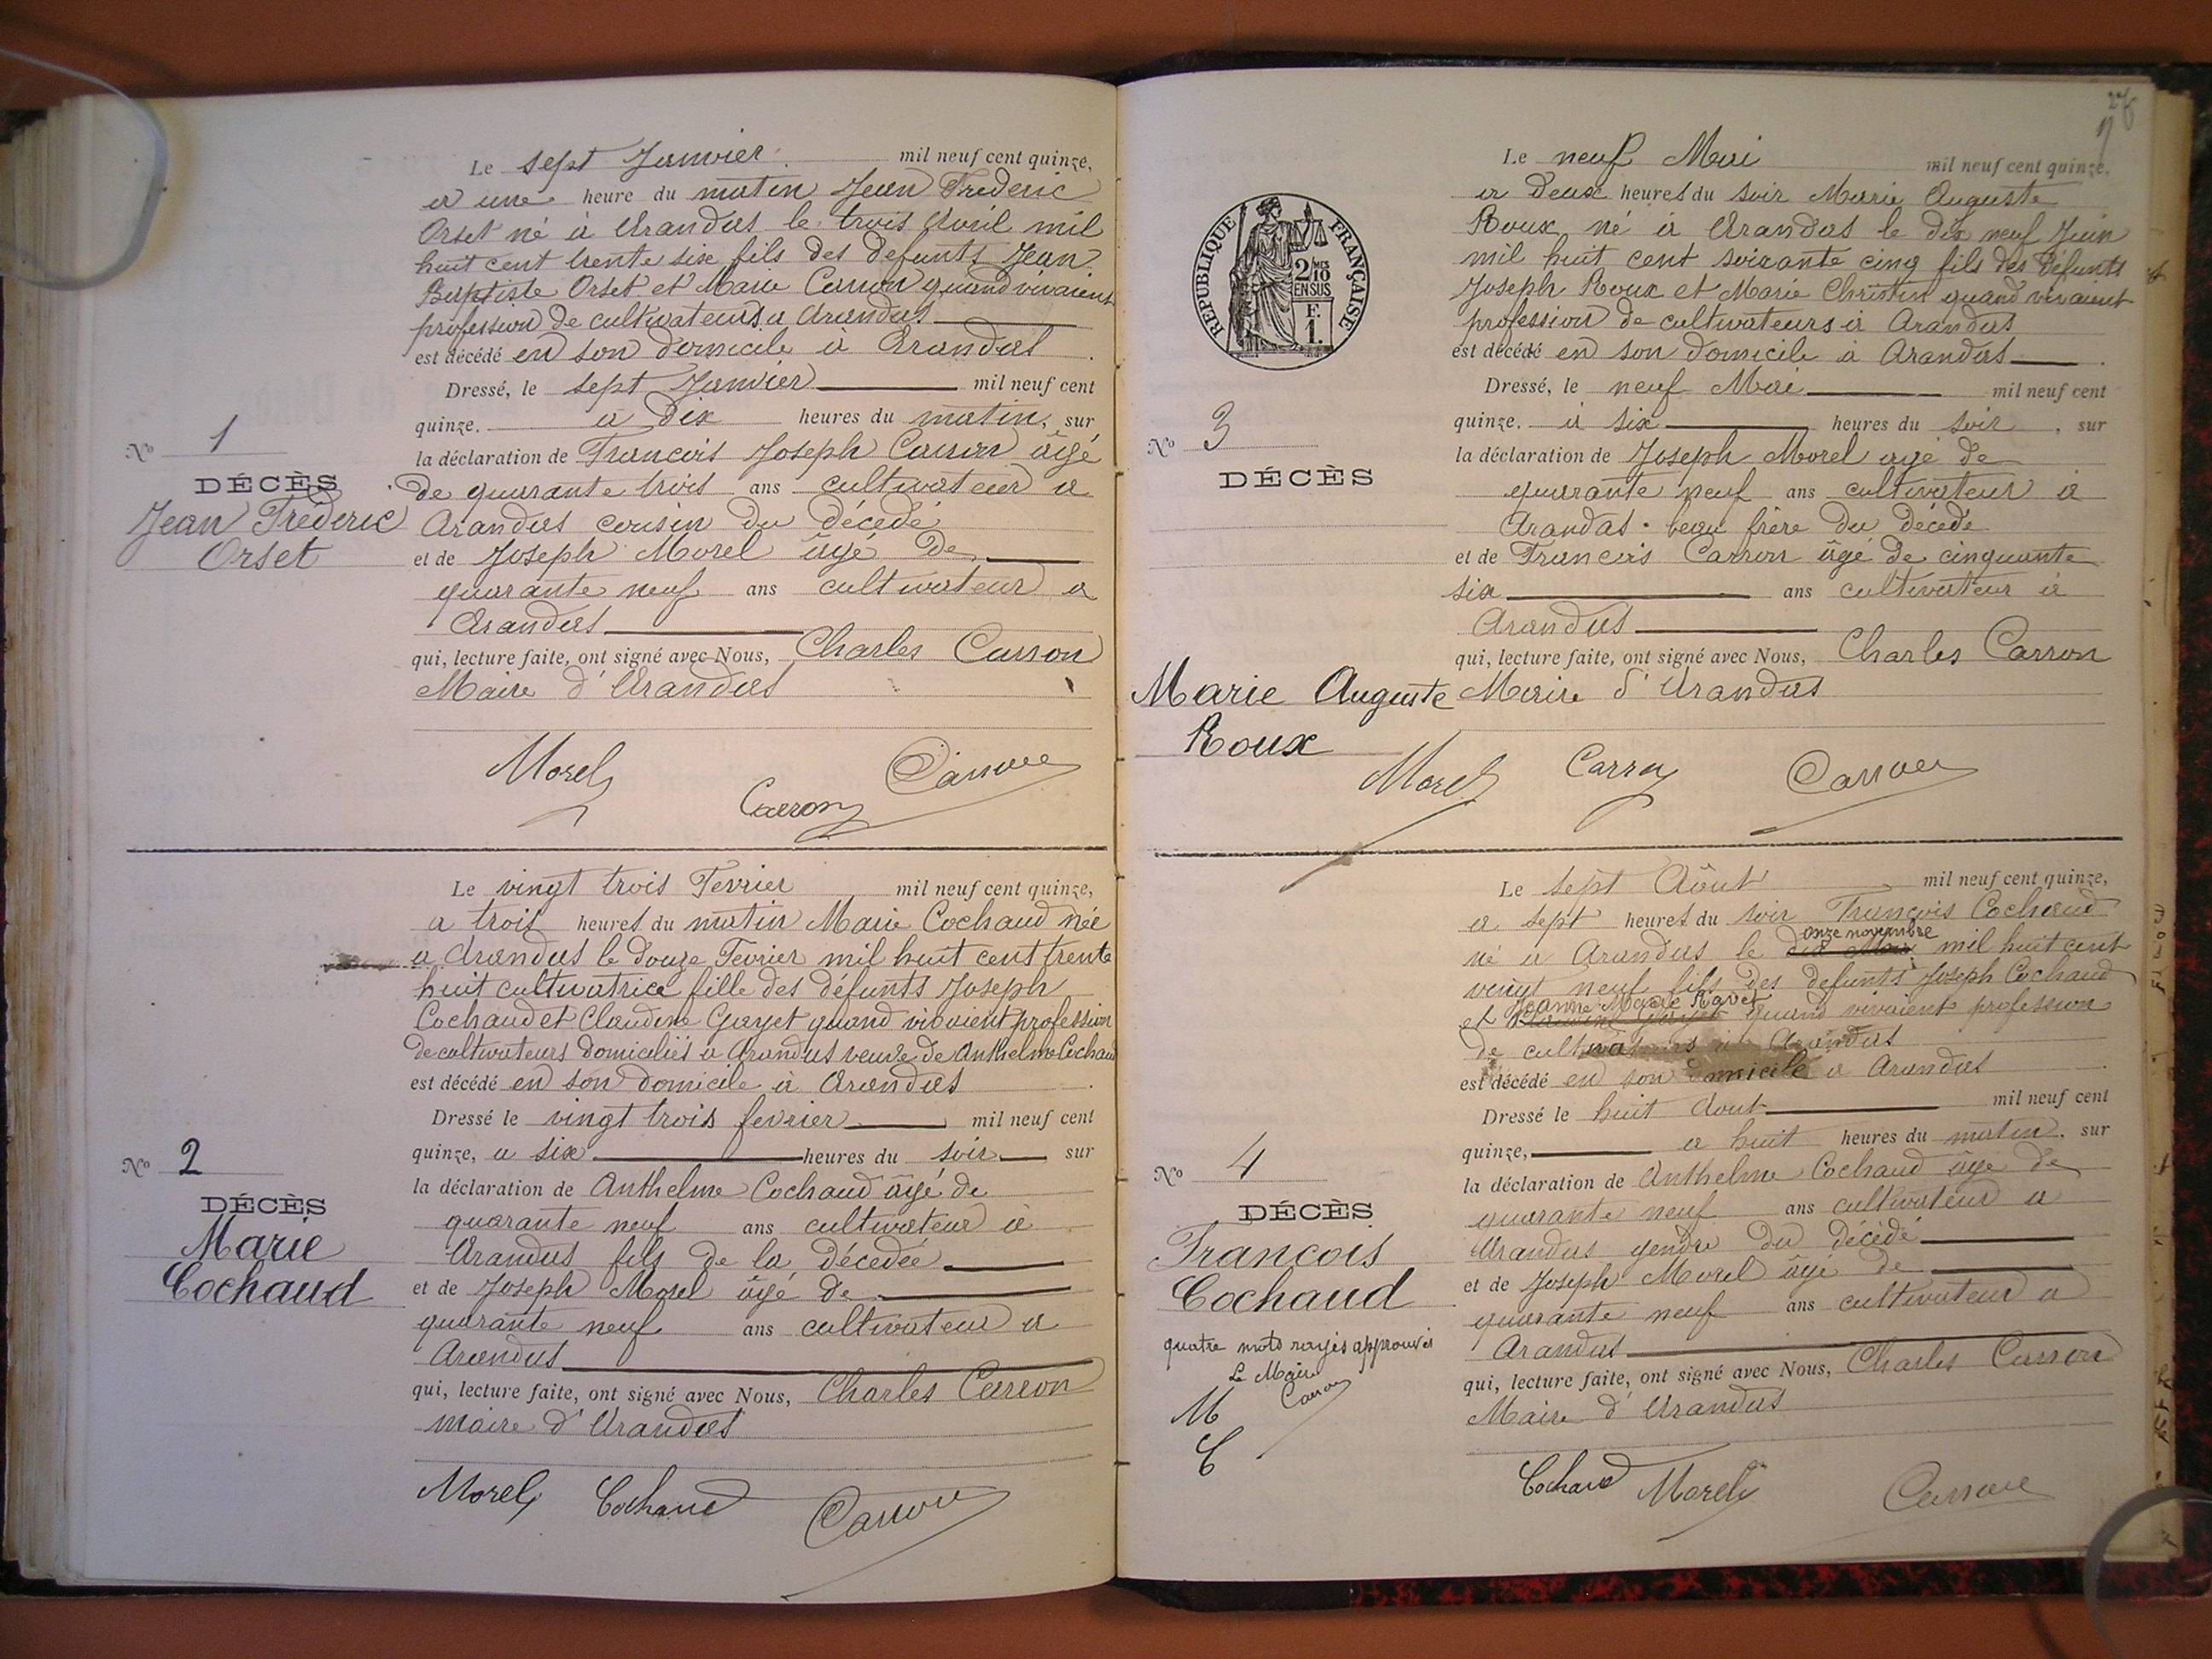 Le sept Janvier mil neuf cent quinze,
a une heure du matin Jean Frederic
Orset né à Arandas le trois Avril mil
huit cent trente six fils des defunts Jean
Baptiste Orset et Marie Carron quand vivaient
profession de cultivateurs a Arandas
est décédé en son domicile à Arandas.
Dressé, le sept Janvier mil neuf cent
quinze. a dix heures du matin, sur
la déclaration de Francois Joseph Carron âgé
de quarante trois ans cultivateur a
Arandas cousin du décedé
et de Joseph Morel âgé de
quarante neuf ans cultivateur a
Arandas
qui, lecture faite, ont signé avec Nous, Charles Carron
Maire d'Arandas
No 1
DÉCÈS
Jean Fréderic
Orset
Morel
Carron
Carron
Le vingt trois Fevrier mil neuf cent quinze,
a trois heures du matin Marie Cochaud née
a Arandas le douze Fevrier mil huit cent trente
huit cultivatrice fille des défunts Joseph
Cochaud et Claudine Gayet quand vivaient profession
de cultivateurs domiciliés a Arandas veuve de Anthelme Cochaud
est décédé en son domicile à Arandas.
Dressé le vingt trois fevrier mil neuf cent
quinze, a six heures du soir sur
la déclaration de Anthelme Cochaud âgé de
quarante neuf ans cultivateur à
Arandas fils de la décedée
et de Joseph Morel âgé de
quarante neuf ans cultivateur a
Arandas
qui, lecture faite, ont signé avec Nous, Charles Carron
maire d'Arandas
No 2
DÉCÈS
Marie
Cochaud
Morel Cochaud Carron
RÉPUBLIQUE FRANÇAISE
2/10 MES
EN SUS
F.
1.
Le neuf Mai mil neuf cent quinze,
a deux heures du soir Marie Auguste
Roux né à Arandas le dix neuf Juin
mil huit cent soixante cinq fils des défunts
Joseph Roux et Marie Christin quand vivaient
profession de cultivateurs à Arandas
est décédé en son domicile à Arandas.
Dressé, le neuf Mai mil neuf cent
quinze. à six heures du soir, sur
la déclaration de Joseph Morel age de
quarante neuf ans cultivateur à
Arandas. beau frère du décédé
et de Francois Carron âgé de cinquante
six ans cultivateur à
Arandas
qui, lecture faite, ont signé avec Nous, Charles Carron
Maire d'Arandas
No 3
DÉCÈS
Marie Auguste
Roux
Morel Carron Carron
Le sept Août mil neuf cent quinze,
a sept heures du soir Francois Cochaud
onze novembre
né a Arandas le dix Mai mil huit cent
vingt neuf fils des defunts Joseph Cochaud
Jeanne Marie Ravet
et Claudine Gayet quand vivaient profession
de cultivateurs à Arandas
est décédé en son domicile a Arandas.
Dressé le huit Aout mil neuf cent
quinze, a huit heures du matin. sur
la déclaration de Anthelme Cochaud âgé de
quarante neuf ans cultivateur a
Arandas gendre du décédé
et de Joseph Morel âgé de
quarante neuf ans cultivateur a
Arandas
qui, lecture faite, ont signé avec Nous, Charles Carron
Maire d'Arandas
No 4
DÉCÈS
Francois
Cochaud
quatre mots rayés approuvés
Le Maire
Carron
M
C
Cochaud Morel Carron